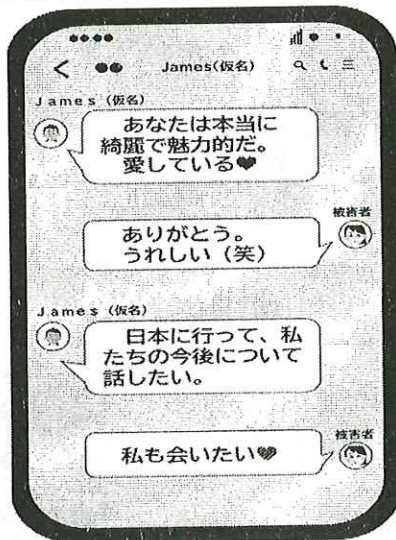 James(仮名)
James (仮名)
あなたは本当に
綺麗で魅力的だ。
愛している♥
被害者
ありがとう。
うれしい（笑）
James (仮名)
日本に行って、私
たちの今後について
話したい。
被害者
私も会いたい♥